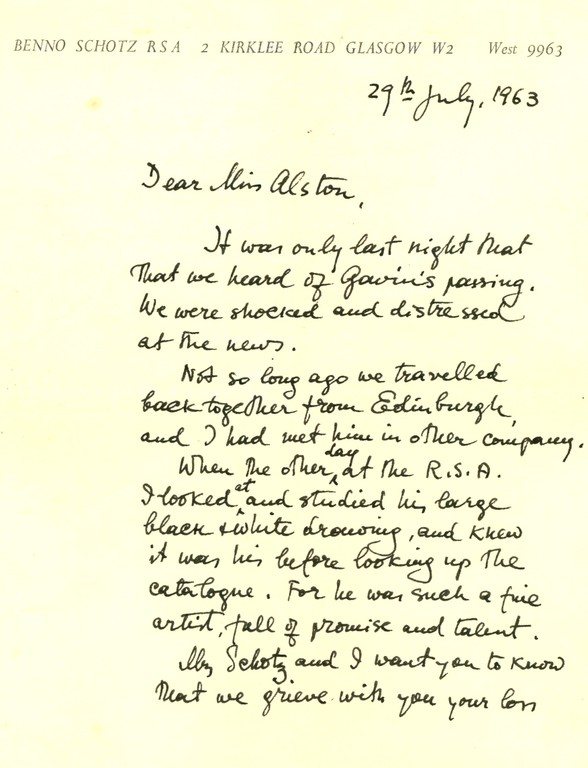 BENNO SCHOTZ RSA 2 KIRKLEE ROAD GLASGOW W2 West 9963
29th July, 1963
Dear Miss Alston,
It was only last night that
that we heard of Gavin's passing.
We were shocked and distressed
at the news.
Not so long ago we travelled
back together from Edinburgh,
and I had met him in other company.
When the other day at the R.S.A.
I looked at and studied his large
black & white drowing, and knew
it was his before looking up the
catalogue. For he was such a fine
artist, full of promise and talent.
Mrs Schotz and I want you to know
that we grieve with you your loss